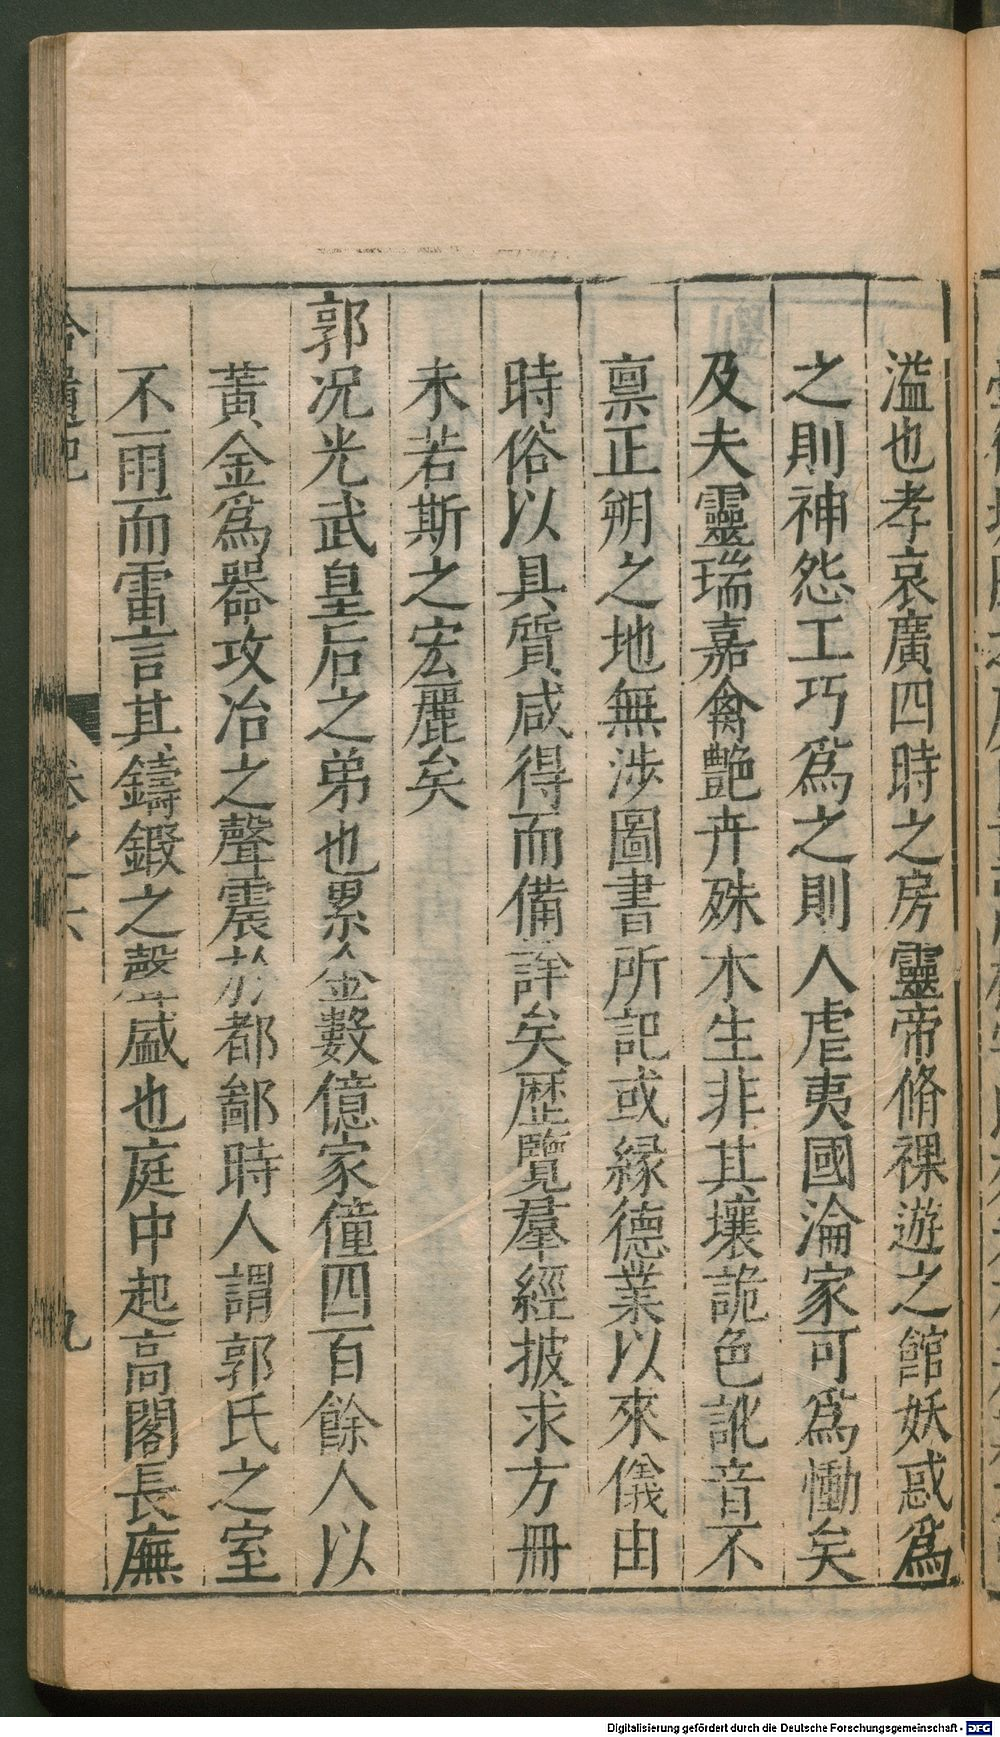 溢也孝哀廣四時之房靈帝脩裸遊之館妖惑爲
之則神怨工巧爲之則人虐夷國淪家可爲慟矣
及夫靈瑞嘉禽艷卉殊木生非其壤詭色訛音不
禀正朔之地無涉圖書所記或緣德業以來儀由
時俗以具質咸得而備詳矣歷覽羣經披求方冊
未若斯之宏麗矣
郭况光武皇后之弟也累金數億家僮四百餘人以
黃金爲器攻冶之聲震於都鄙時人謂郭氏之室
不雨而雷言其鑄鍛之聲盛也庭中起高閣長廡
拾遺記 卷之六 九
Digitalisierung gefördert durch die Deutsche Forschungsgemeinschaft - DFG